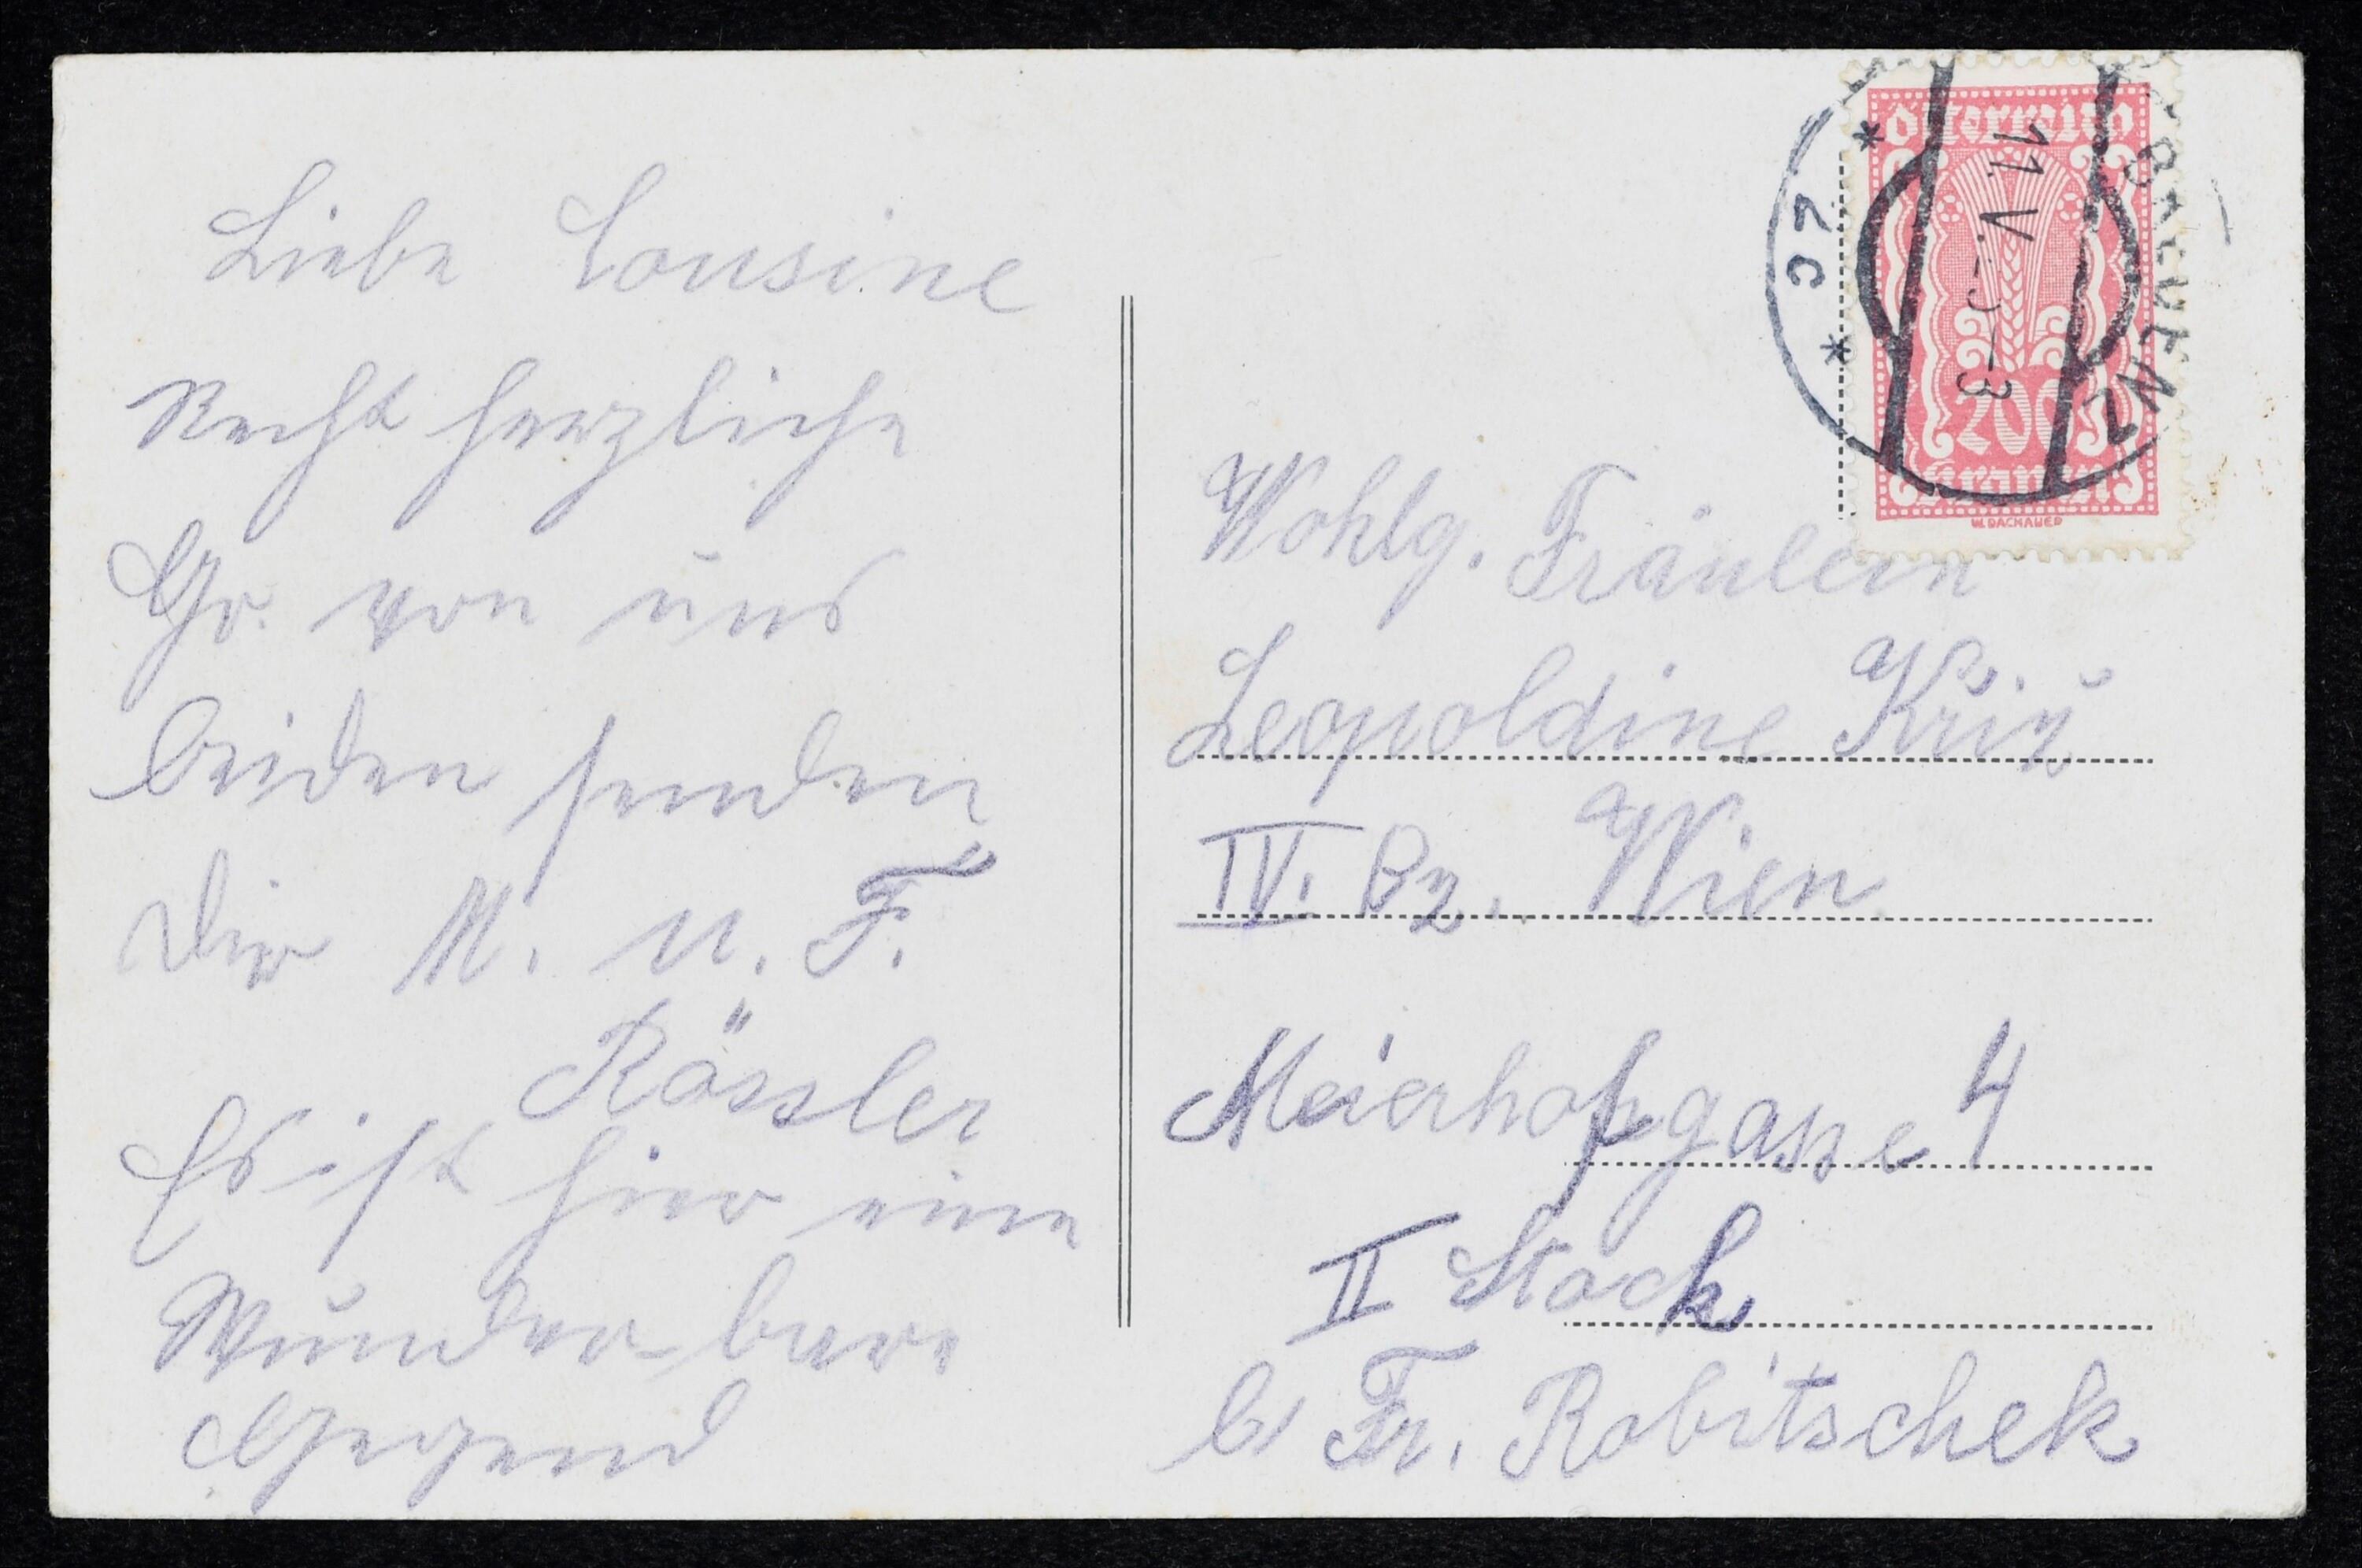 Liebe Cousine
Recht herzliche
Gr. von uns
beiden senden
Dir M. u. F.
Rössler
Es ist hier eine
Wunder-bare
Gegend
Österreich
11. V.
200
Kronen
W. DACHAUER
* 2c *
Wohlg. Fräulein
Leopoldine
IV. Bz. Wien
Meierhofgasse 4
II Stock
b/ Fr. Robitschek